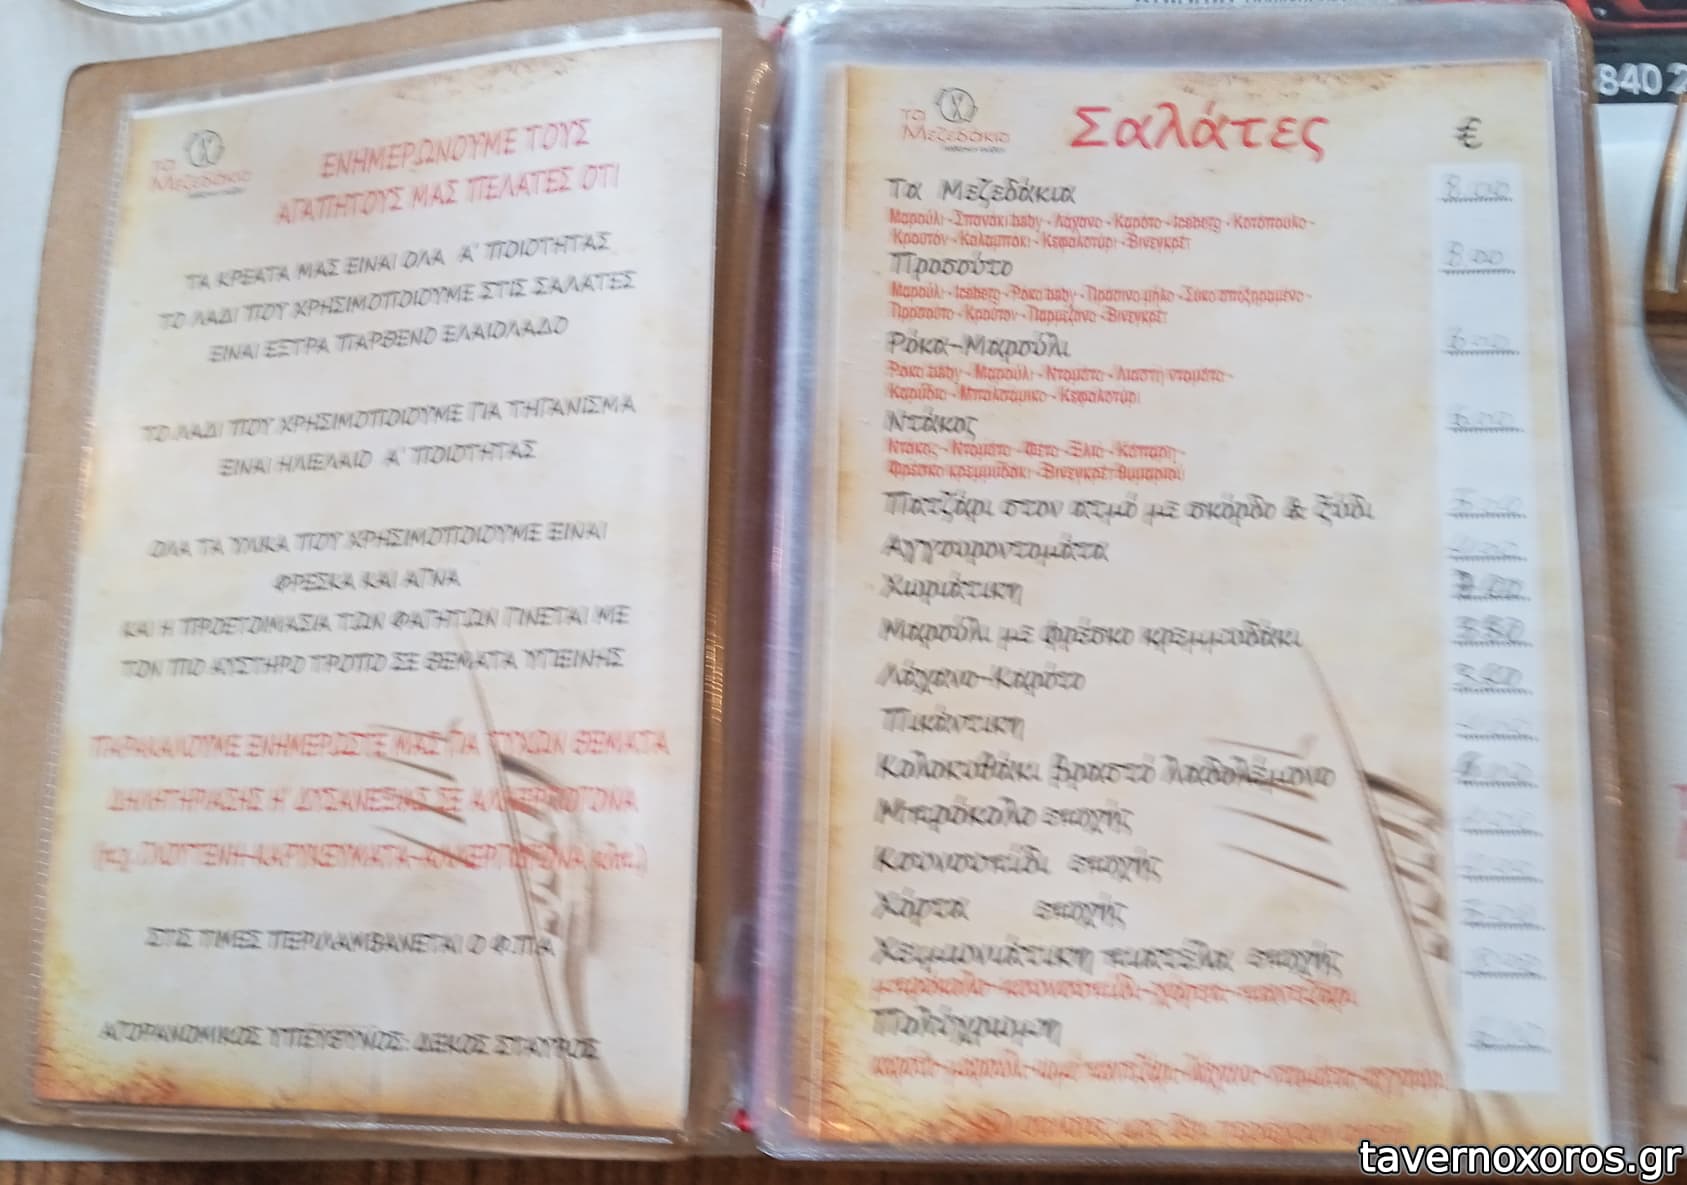 Τα Μεζεδάκια
ΕΝΗΜΕΡΩΝΟΥΜΕ ΤΟΥΣ
ΑΓΑΠΗΤΟΥΣ ΜΑΣ ΠΕΛΑΤΕΣ ΟΤΙ
ΤΑ ΚΡΕΑΤΑ ΜΑΣ ΕΙΝΑΙ ΟΛΑ Α' ΠΟΙΟΤΗΤΑΣ
ΤΟ ΛΑΔΙ ΠΟΥ ΧΡΗΣΙΜΟΠΟΙΟΥΜΕ ΣΤΙΣ ΣΑΛΑΤΕΣ
ΕΙΝΑΙ ΕΞΤΡΑ ΠΑΡΘΕΝΟ ΕΛΑΙΟΛΑΔΟ
ΤΟ ΛΑΔΙ ΠΟΥ ΧΡΗΣΙΜΟΠΟΙΟΥΜΕ ΓΙΑ ΤΗΓΑΝΙΣΜΑ
ΕΙΝΑΙ ΗΛΙΕΛΑΙΟ Α' ΠΟΙΟΤΗΤΑΣ
ΟΛΑ ΤΑ ΥΛΙΚΑ ΠΟΥ ΧΡΗΣΙΜΟΠΟΙΟΥΜΕ ΕΙΝΑΙ
ΦΡΕΣΚΑ ΚΑΙ ΑΓΝΑ
ΚΑΙ Η ΠΡΟΕΤΟΙΜΑΣΙΑ ΤΩΝ ΦΑΓΗΤΩΝ ΓΙΝΕΤΑΙ ΜΕ
ΤΟΝ ΠΙΟ ΑΥΣΤΗΡΟ ΤΡΟΠΟ ΣΕ ΘΕΜΑΤΑ ΥΓΙΕΙΝΗΣ
ΠΑΡΑΚΑΛΟΥΜΕ ΕΝΗΜΕΡΩΣΤΕ ΜΑΣ ΓΙΑ ΤΥΧΩΝ ΘΕΜΑΤΑ
ΔΗΛΗΤΗΡΙΑΣΗΣ Η' ΔΥΣΑΝΕΞΙΑΣ ΣΕ ΑΛΛΕΡΓΙΟΓΟΝΑ
(π.χ. ΓΛΟΥΤΕΝΗ-ΚΑΡΥΚΕΥΜΑΤΑ-ΑΛΛΕΡΓΙΟΓΟΝΑ κλπ.)
ΣΤΙΣ ΤΙΜΕΣ ΠΕΡΙΛΑΜΒΑΝΕΤΑΙ Ο Φ.Π.Α
ΑΓΟΡΑΝΟΜΙΚΟΣ ΥΠΕΥΘΥΝΟΣ: ΔΕΚΟΣ ΣΤΑΥΡΟΣ
Τα Μεζεδάκια
Σαλάτες €
Τα Μεζεδάκια 8.00
Μαρούλι - Σπανάκι baby - Λάχανο - Καρότο - Iceberg - Κοτόπουλο -
Κρουτόν - Καλαμπόκι - Κεφαλοτύρι - Βινεγκρέτ
Προσούτο 8.00
Μαρούλι - Iceberg - Ρόκα baby - Πράσινο μήλο - Σύκο αποξηραμένο -
Προσούτο - Κρουτόν - Παρμεζάνα - Βινεγκρέτ
Ρόκα-Μαρούλι
Ρόκα baby - Μαρούλι - Ντομάτα - Λιαστή ντομάτα -
Καρύδια - Μπαλσάμικο - Κεφαλοτύρι
Ντάκος
Ντάκος - Ντομάτα - Φέτα - Ελιά - Κάπαρη -
Φρέσκο κρεμμυδάκι - Βινεγκρέτ θυμαριού
Πατζάρι στον ατμό με σκόρδο & ξύδι
Αγγουροντομάτα
Χωριάτικη
Μαρούλι με φρέσκο κρεμμυδάκι
Λάχανο-Καρότο
Πικάντικη
Κολοκυθάκι βραστό λαδολέμονο
Μπρόκολο εποχής
Κουνουπίδι εποχής
Χόρτα εποχής
Χειμωνιάτικη πιατέλα εποχής
μπρόκολο-κουνουπίδι-χόρτα-παντζάρι
Πολύχρωμη
840 2
tavernoxoros.gr